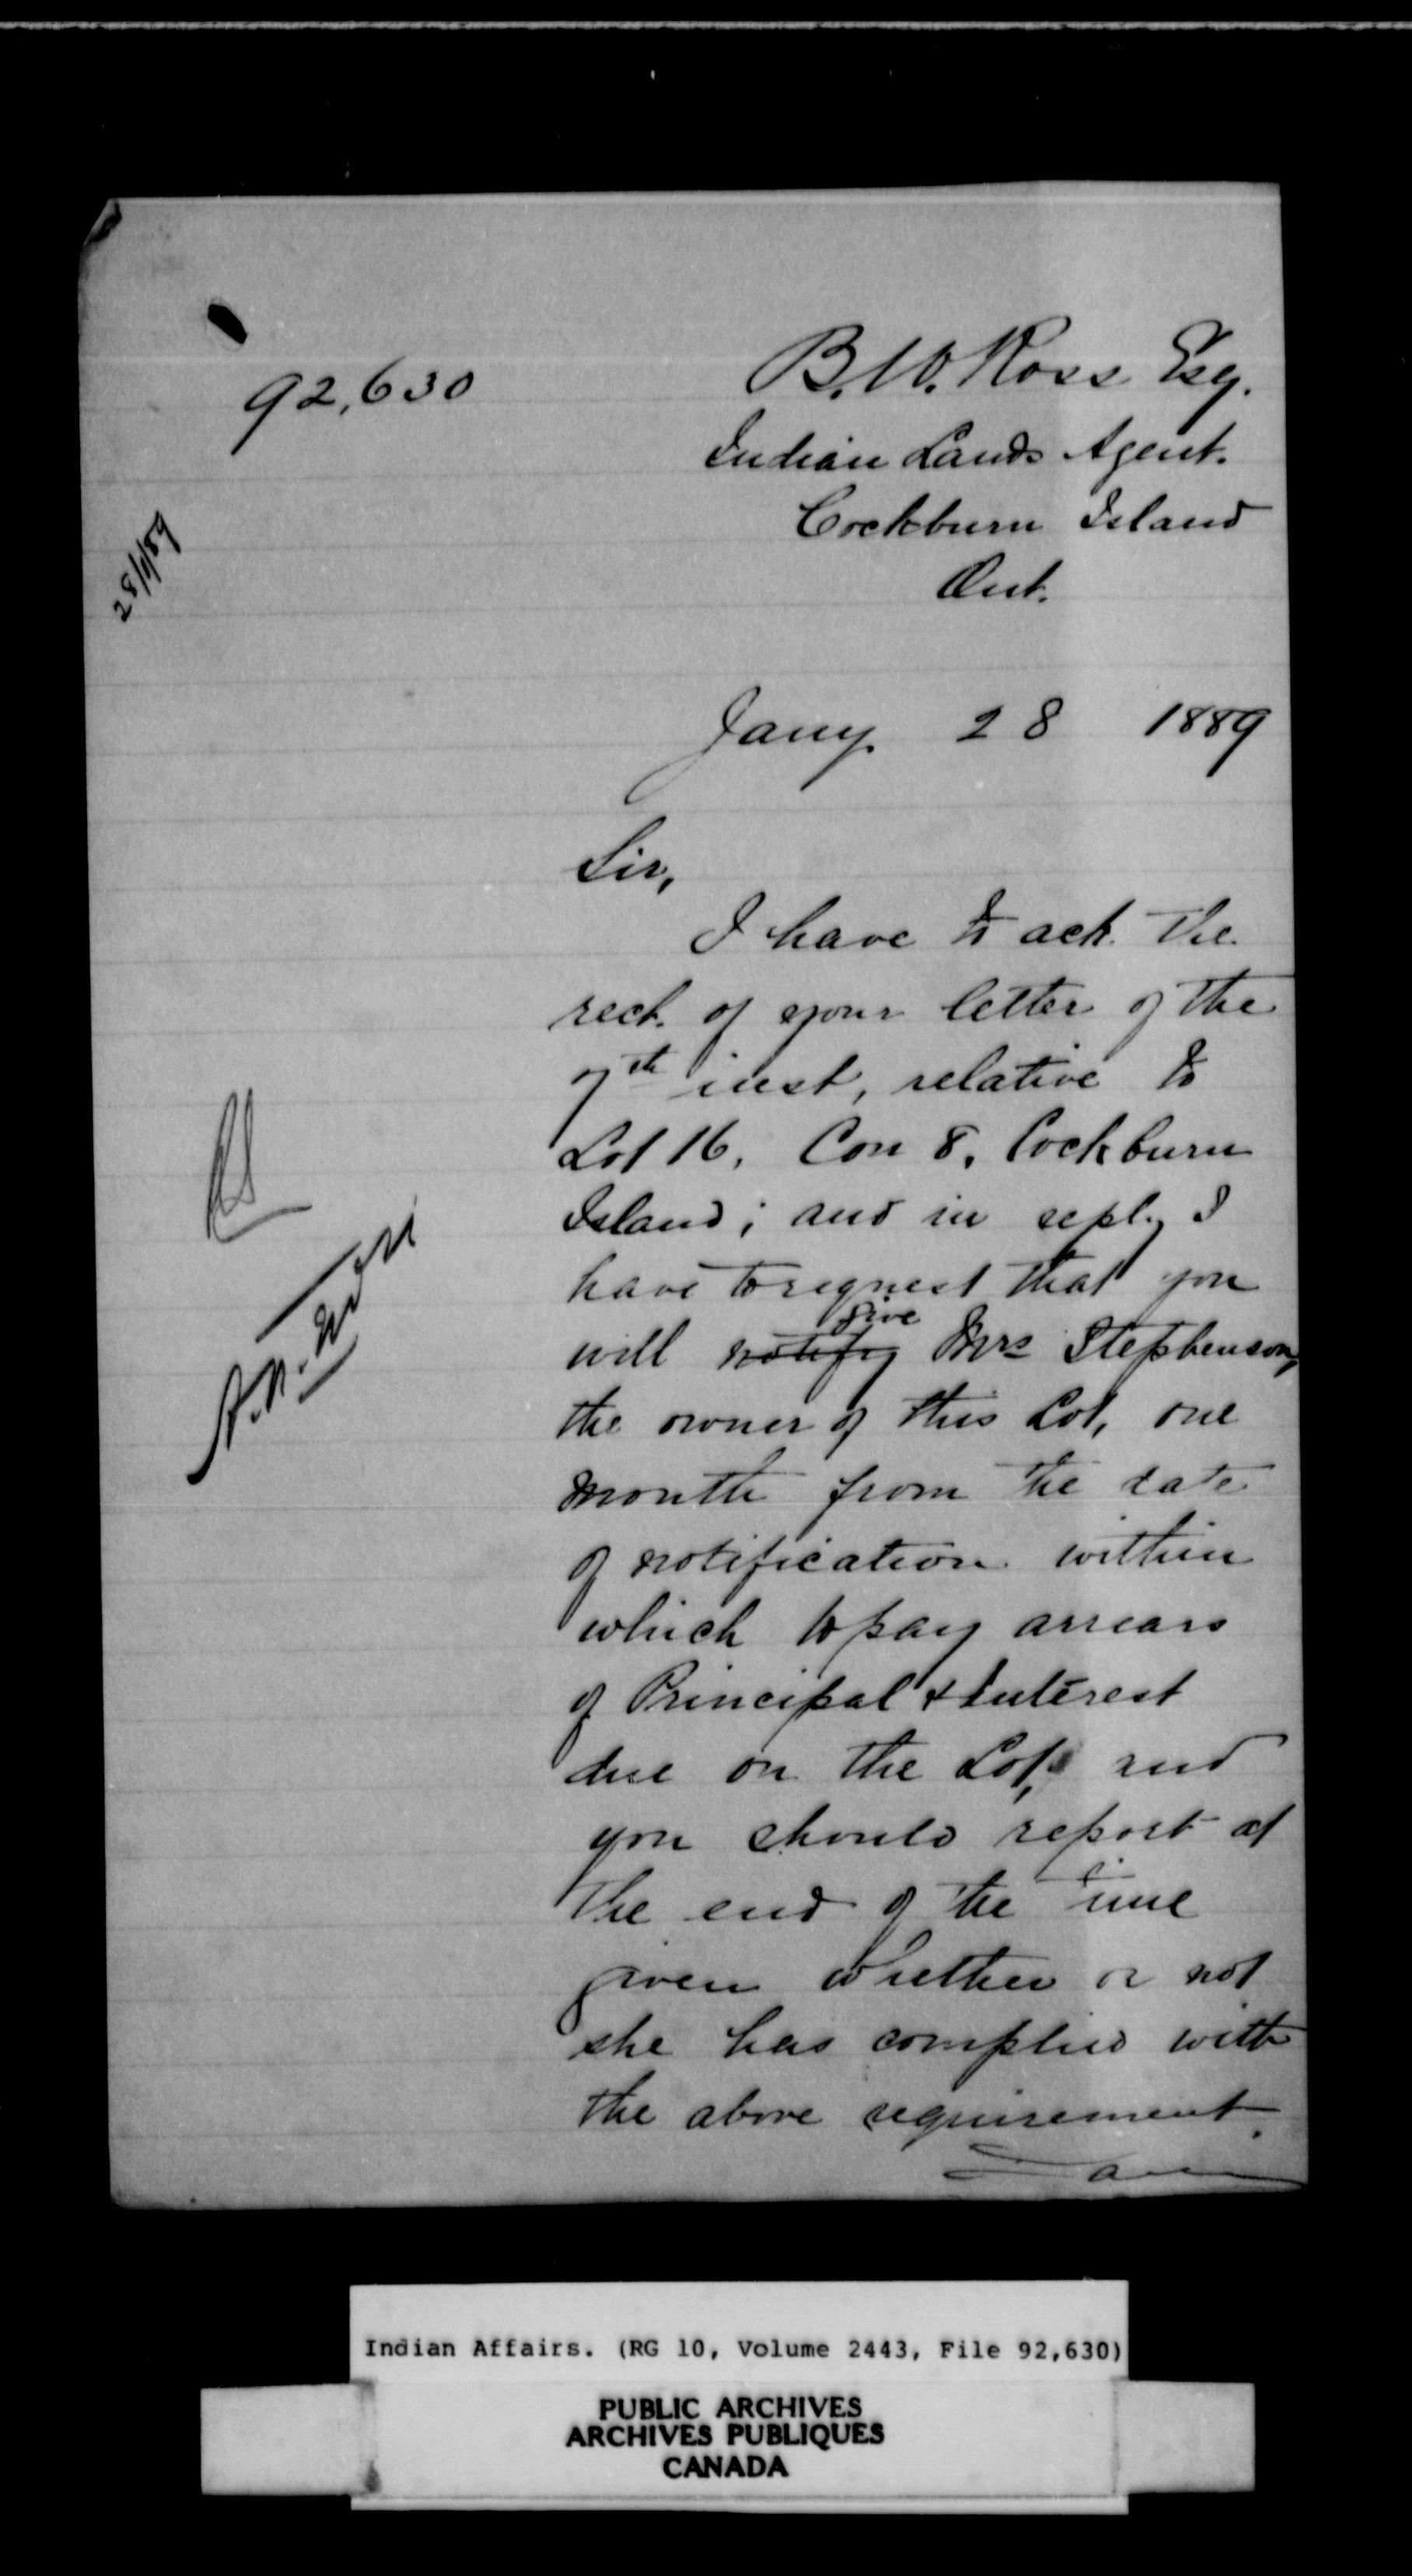 92,630
B.W. Ross Esq.
Indian Lands Agent.
Cockburn Island
Ont.
28/1/89
Jany. 28 1889
Sir,
I have to ack. the
rect. of your letter of the
7th inst, relative to
Lot 16, Con 8, Cockburn
Island; and in reply I
have to request that you
will notify give Mrs Stephenson,
the owner of this Lot, one
month from the date
of notification within
which to pay arrears
of Principal & Interest
due on the Lot, and
you should report at
the end of the time
given whether or not
she has complied with
the above requirement.
Indian Affairs. (RG 10, Volume 2443, File 92,630)
PUBLIC ARCHIVES
ARCHIVES PUBLIQUES
CANADA